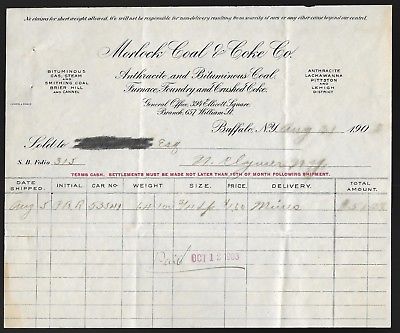 No claims for short weight allowed. We will not be responsible for non-delivery resulting from scarcity of cars or any other cause beyond our control.
Morlock Coal & Coke Co.
BITUMINOUS
GAS, STEAM
SMITHING COAL
BRIER HILL
AND CANNEL
Anthracite and Bituminous Coal.
Furnace, Foundry and Crushed Coke.
General Office, 394 Ellicott Square.
Branch, 657 William St.
ANTHRACITE
LACKAWANNA
PITTSTON
AND
LEHIGH
DISTRICT
Buffalo, N.Y. Aug 31 190
Sold to Esq
S. B. Folio 313 N.
TERMS CASH. SETTLEMENTS MUST BE MADE NOT LATER THAN 15TH OF MONTH FOLLOWING SHIPMENT.
DATE SHIPPED. INITIAL CAR NO. WEIGHT SIZE. PRICE. DELIVERY. TOTAL AMOUNT.
Aug 5 Mines
Paid OCT 12 1903